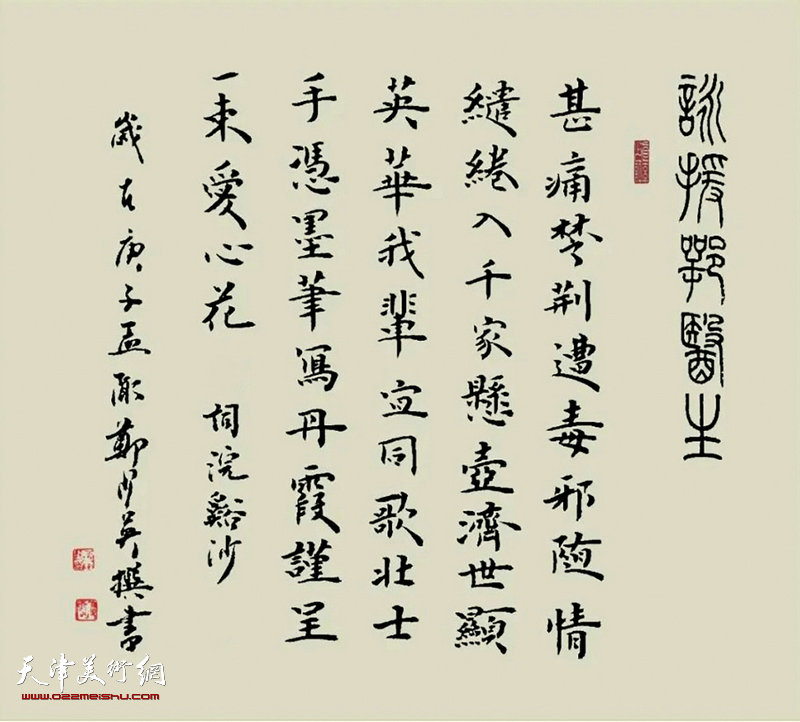 詠援鄂醫生
甚痛楚荆遭毒邪随情
繾綣入千家懸壺濟世顯
英華我輩宜同歌壯士
手憑墨筆寫丹霞謹呈
一束愛心花 詞浣谿沙
歲在庚子孟陬鄭少英撰書
天津美術網
www.022meishu.com